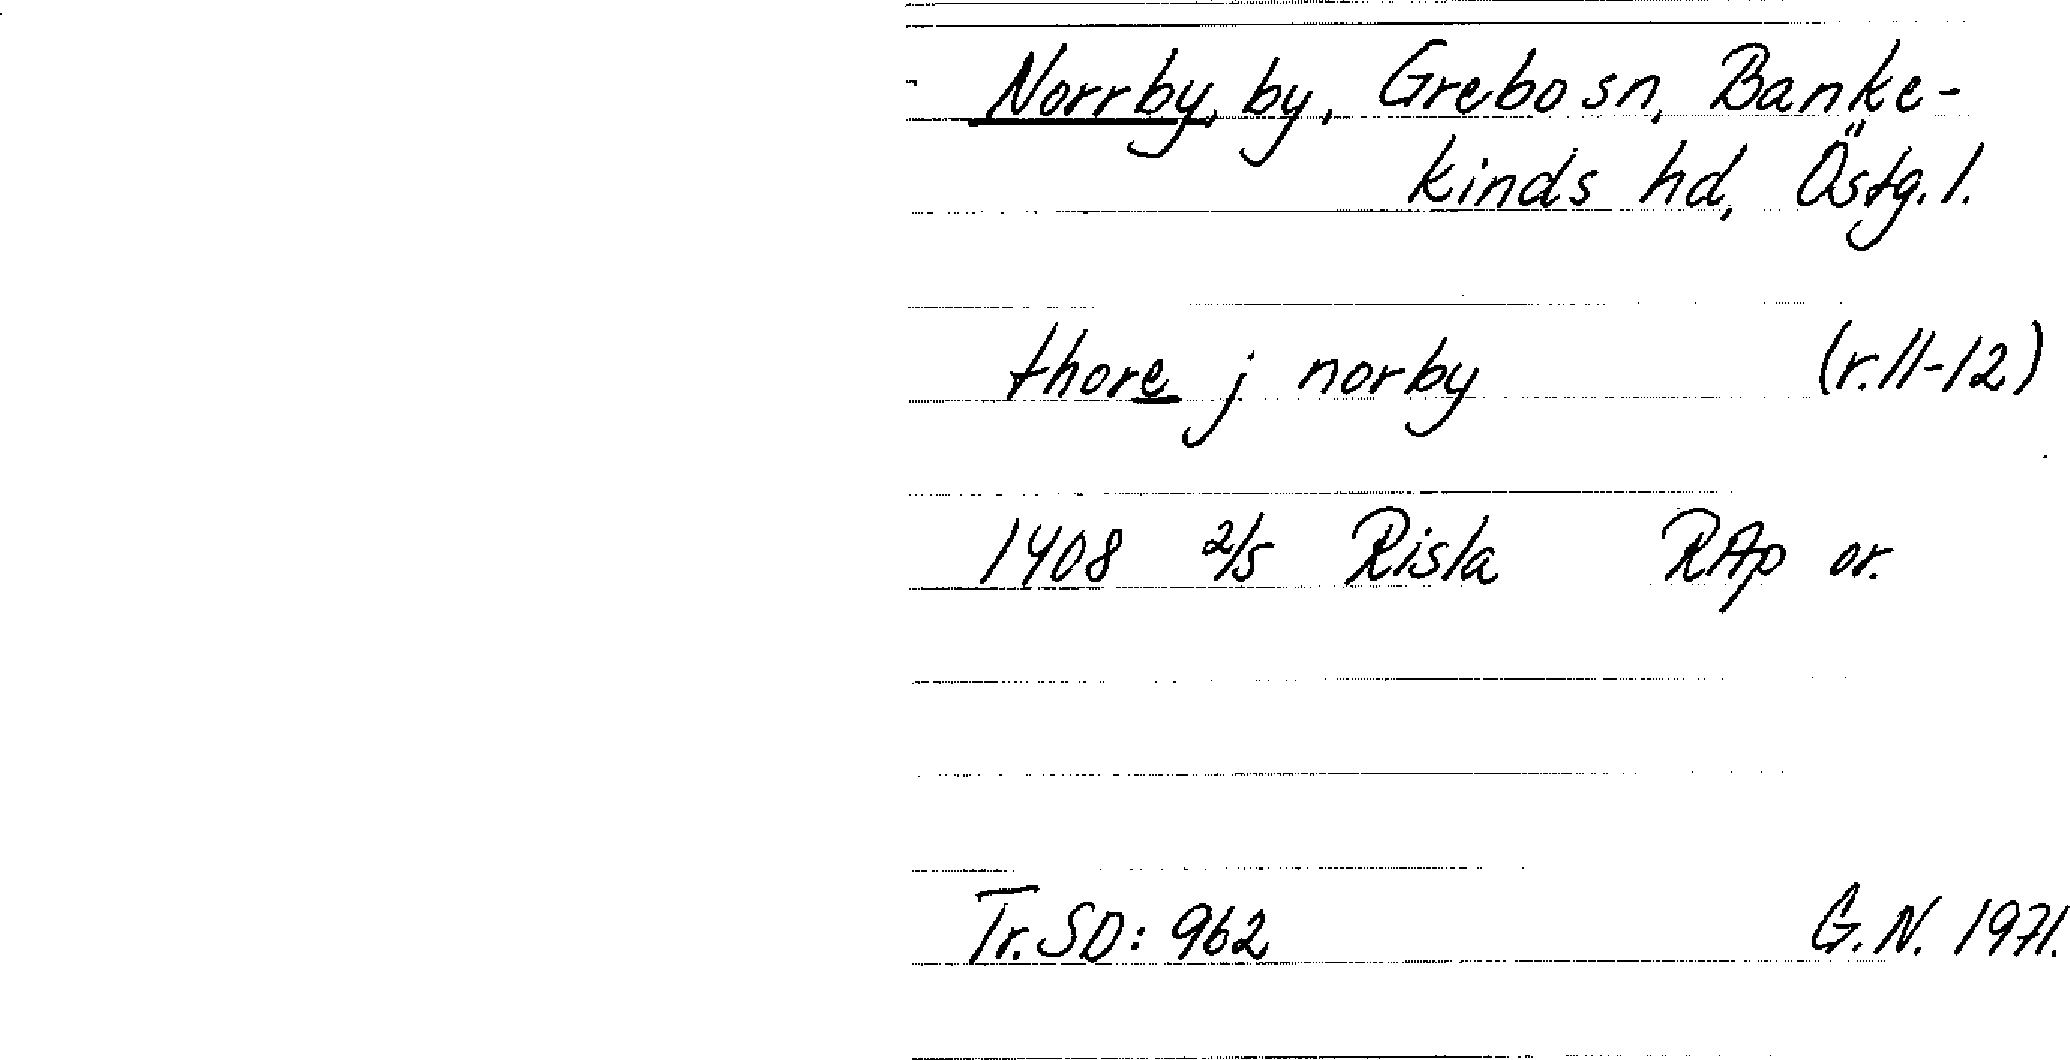 Norrby, by, Grebo sn, Banke-
kinds hd, Östg. l.
thore j norby (r. 11-12)
1408 2/5 Risla RAp or.
Tr. SD: 962 G. N. 1971.